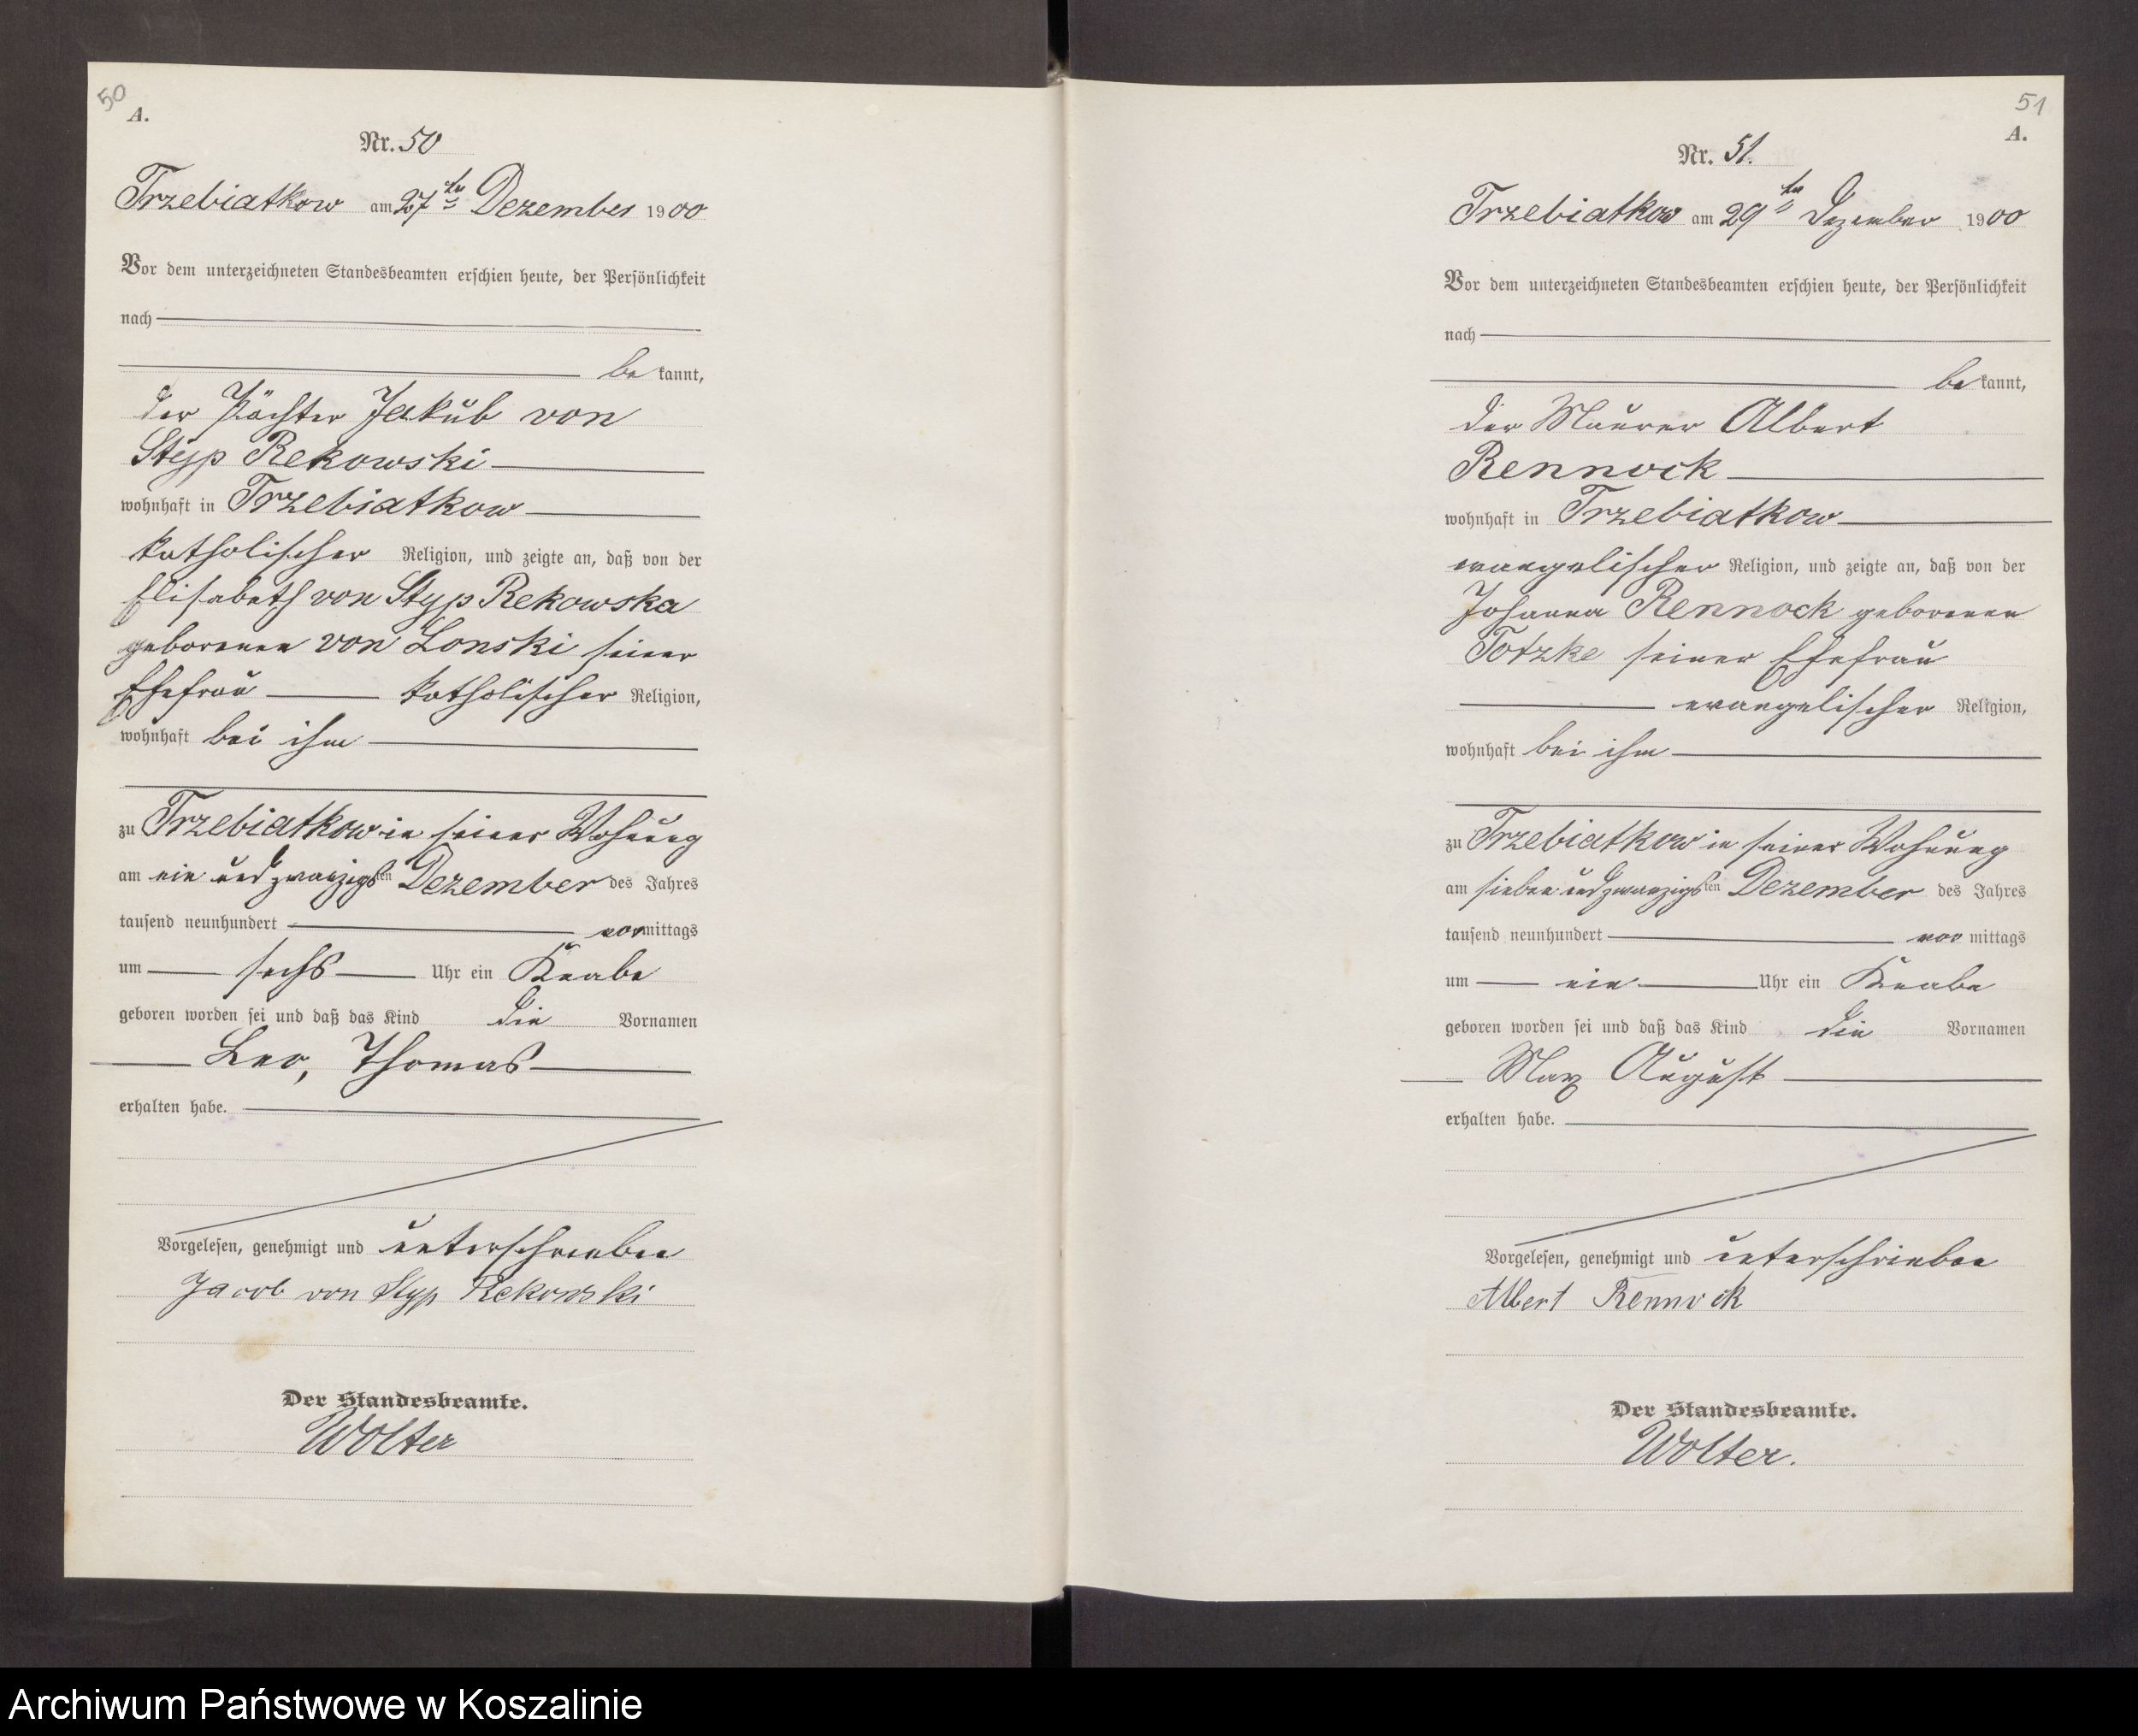 50
A.
Nr. 50
Trzebiatkow am 27ten Dezember 1900
Vor dem unterzeichneten Standesbeamten erschien heute, der Persönlichkeit
nach
be kannt,
der Pächter Jakub von
Styp Rekowski
wohnhaft in Trzebiatkow
katholischer Religion, und zeigte an, daß von der
Elisabeth von Styp Rekowska
geborenen von Lonski seiner
Ehefrau katholischer Religion,
wohnhaft bei ihm
zu Trzebiatkow in seiner Wohnung
am ein und zwanzigsten Dezember des Jahres
tausend neunhundert vormittags
um sechs Uhr ein Knabe
geboren worden sei und daß das Kind die Vornamen
Leo, Thomas
erhalten habe.
Vorgelesen, genehmigt und unterschrieben
Jacob von Styp Rekowski
Der Standesbeamte.
Wolter
51
A.
Nr. 51.
Trzebiatkow am 29ten Dezember 1900
Vor dem unterzeichneten Standesbeamten erschien heute, der Persönlichkeit
nach
be kannt,
der Maurer Albert
Rennock
wohnhaft in Trzebiatkow
evangelischer Religion, und zeigte an, daß von der
Johanna Rennock geborenen
Totzke seiner Ehefrau
evangelischer Religion,
wohnhaft bei ihm
zu Trzebiatkow in seiner Wohnung
am sieben und zwanzigsten Dezember des Jahres
tausend neunhundert vor mittags
um ein Uhr ein Knabe
geboren worden sei und daß das Kind die Vornamen
Max August
erhalten habe.
Vorgelesen, genehmigt und unterschrieben
Albert Rennock
Der Standesbeamte.
Wolter.
Archiwum Państwowe w Koszalinie